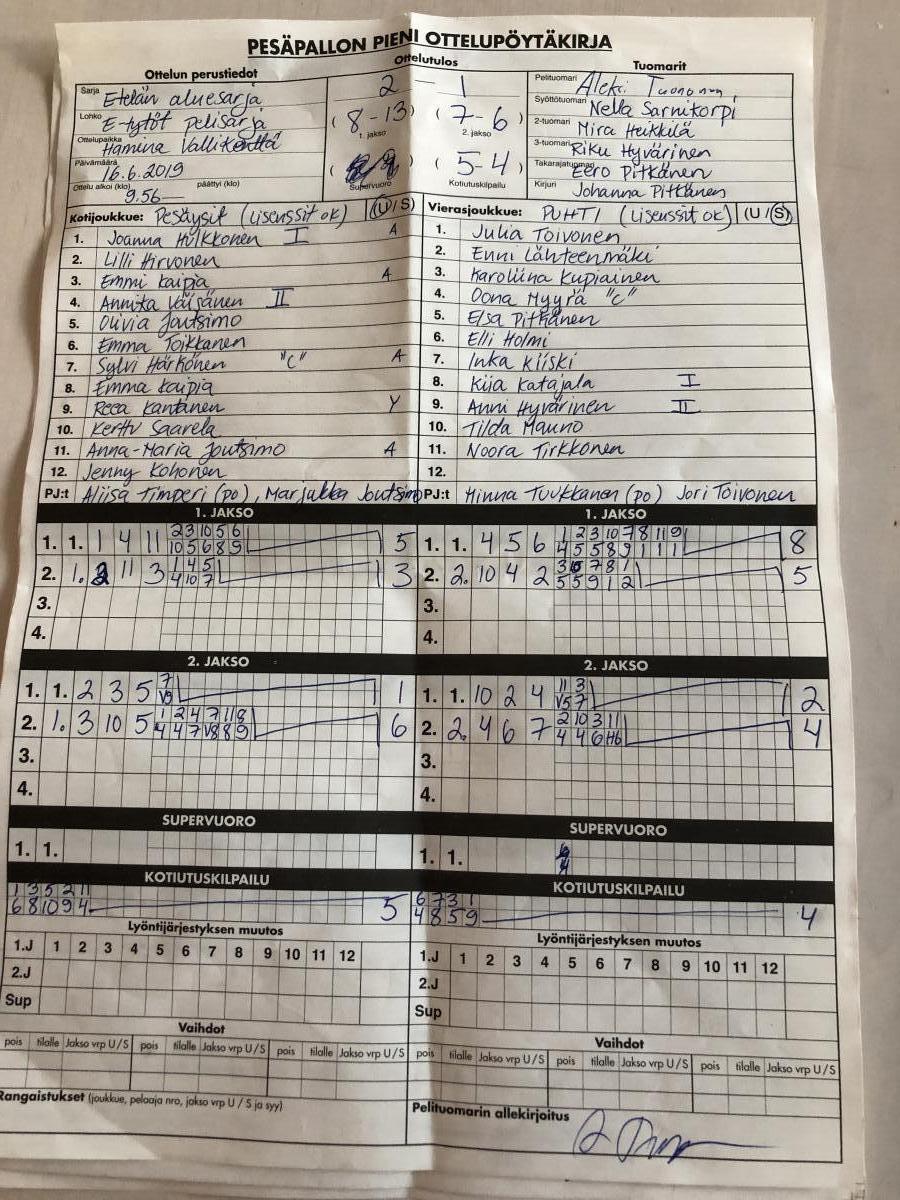 PESÄPALLON PIENI OTTELUPÖYTÄKIRJA
Ottelun perustiedot
Ottelutulos
Tuomarit
Sarja Etelän aluesarja
Lohko E-tytöt pelisarja
Ottelupaikka Hamina Vallikenttä
Päivämäärä 16.6.2019
Ottelu alkoi (klo) päättyi (klo)
9.56—
2 — 1
(8-13) (7-6)
1. jakso 2. jakso
( ) (5-4)
Supervuoro Kotiutuskilpailu
Pelituomari Aleksi
Syöttötuomari Nella Sarnikorpi
2-tuomari Mira Heikkilä
3-tuomari Riku Hyvärinen
Takarajatuomari Eero Pitkänen
Kirjuri Johanna Pitkänen
Kotijoukkue: Pesäysit (lisenssit ok) (U/S)
1. Joanna Hulkkonen I A
2. Lilli Hirvonen
3. Emmi Kaipia A
4. Annika Väisänen II
5. Olivia Joutsimo
6. Emma Toikkanen
7. Sylvi Härkönen "C" A
8. Emma Kaipia
9. Reea Kantanen Y
10. Kerttu Saarela
11. Anna-Maria Joutsimo A
12. Jenny Kohonen
PJ:t Aliisa Timperi (po), Marjukka Joutsimo
Vierasjoukkue: PUHTI (lisenssit ok) (U/S)
1. Julia Toivonen
2. Enni Lähteenmäki
3. Karoliina Kupiainen
4. Oona Myyrä "C"
5. Elsa Pitkänen
6. Elli Holmi
7. Inka Kiiski
8. Kiia Katajala I
9. Anni Hyvärinen II
10. Tilda Mauno
11. Noora Tirkkonen
12.
PJ:t Minna Tuukkanen (po) Jori Toivonen
1. JAKSO
1. 1. 1 4 11 2 3 10 5 6 5
10 5 6 8 9
2. 1. 11 3 1 4 5 3
4 10 7
3.
4.
1. JAKSO
1. 1. 4 5 6 1 2 3 10 7 8 11 9 8
4 5 5 8 9 1 1 1
2. 2. 10 4 2 3 7 8 1 5
5 5 9 1 2
3.
4.
2. JAKSO
1. 1. 2 3 5 7 1
V9
2. 1. 3 10 5 1 2 4 7 11 8 6
4 4 7 V8 8 9
3.
4.
2. JAKSO
1. 1. 10 2 4 11 3 2
V5 7
2. 2. 4 6 7 2 10 3 11 4
4 4 6 H6
3.
4.
SUPERVUORO
1. 1.
SUPERVUORO
1. 1.
KOTIUTUSKILPAILU
1 3 5 2 11
6 8 10 9 4 5
KOTIUTUSKILPAILU
6 7 3 1
4 8 5 9 4
Lyöntijärjestyksen muutos
1.J 1 2 3 4 5 6 7 8 9 10 11 12
2.J
Sup
Lyöntijärjestyksen muutos
1.J 1 2 3 4 5 6 7 8 9 10 11 12
2.J
Sup
Vaihdot
pois tilalle Jakso vrp U/S pois tilalle Jakso vrp U/S pois tilalle Jakso vrp U/S
Vaihdot
pois tilalle Jakso vrp U/S pois tilalle Jakso vrp U/S pois tilalle Jakso vrp U/S
Rangaistukset (joukkue, pelaaja nro, jakso vrp U / S ja syy)
Pelituomarin allekirjoitus